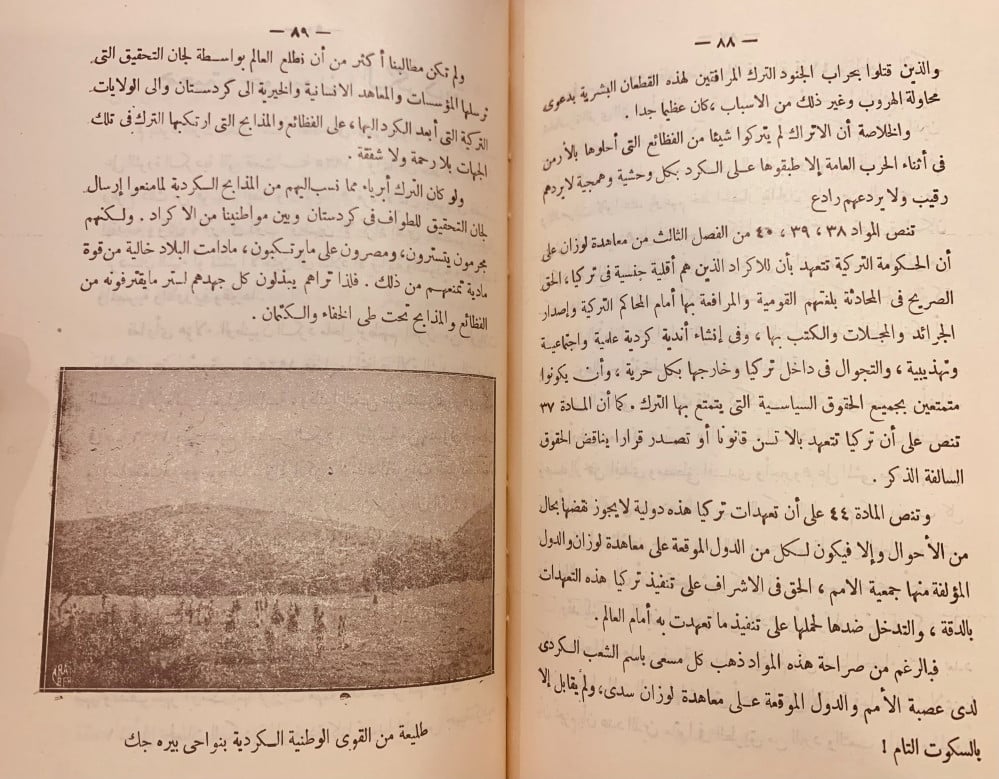 — ٨٨ —
والذين قتلوا بحراب الجنود الترك المرافقين لهذه القطعان البشرية بدعوى
محاولة الهروب وغير ذلك من الاسباب ، كان عظيما جدا .
والخلاصة أن الاتراك لم يتركوا شيئا من الفظائع التى أحلوها بالأرمن
فى أثناء الحرب العامة إلا طبقوها على الكرد بكل وحشية وهمجية لا يردهم
رقيب ولا يردعهم رادع
تنص المواد ٣٨ ، ٣٩ ، ٤٠ من الفصل الثالث من معاهدة لوزان على
أن الحكومة التركية تتعهد بأن للاكراد الذين هم أقلية جنسية فى تركيا، الحق
الصريح فى المحادثة بلغتهم القومية والمرافعة بها أمام المحاكم التركية وإصدار
الجرائد والمجلات والكتب بها ، وفى إنشاء أندية كردية علمية واجتماعية
وتهذيبية ، والتجوال فى داخل تركيا وخارجها بكل حرية ، وأن يكونوا
متمتعين بجميع الحقوق السياسية التى يتمتع بها الترك . كما أن المادة ٣٧
تنص على أن تركيا تتعهد بالا تسن قانونا أو تصدر قرارا يناقض الحقوق
السالفة الذكر .
وتنص المادة ٤٤ على أن تعهدات تركيا هذه دولية لا يجوز نقضها بحال
من الأحوال وإلا فيكون لكل من الدول الموقعة على معاهدة لوزان والدول
المؤلفة منها جمعية الامم ، الحق فى الاشراف على تنفيذ تركيا هذه التعهدات
بالدقة ، والتدخل ضدها لحملها على تنفيذ ما تعهدت به أمام العالم .
فبالرغم من صراحة هذه المواد ذهب كل مسعى باسم الشعب الكردى
لدى عصبة الأمم والدول الموقعة على معاهدة لوزان سدى، ولم يقابل إلا
بالسكوت التام !
— ٨٩ —
ولم تكن مطالبنا أكثر من أن نطلع العالم بواسطة لجان التحقيق التى
ترسلها المؤسسات والمعاهد الانسانية والخيرية الى كردستان والى الولايات
التركية التى أبعد الكرد اليها، على الفظائع والمذابح التى ارتكبها الترك فى تلك
الجهات بلا رحمة ولا شفقة .
ولو كان الترك أبرياء مما نسب اليهم من المذابح الكردية لما منعوا إرسال
لجان التحقيق للطواف فى كردستان وبين مواطنينا من الاكراد . ولكنهم
مجرمون يتسترون، ومصرون على ما يرتكبون، مادامت البلاد خالية من قوة
مادية تمنعهم من ذلك . فلذا تراهم يبذلون كل جهدهم لستر ما يقترفونه من
الفظائع والمذابح تحت طى الخفاء والكتمان .
طليعة من القوى الوطنية الكردية بنواحى بيره جك